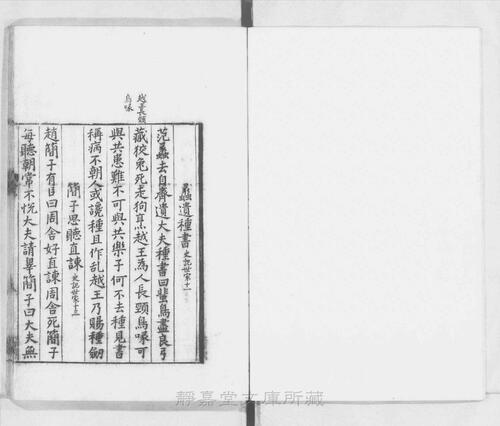 越長頸
鳥喙
蠡遺種書 史記世家十一
范蠡去自齊遺大夫種書曰蜚鳥盡良弓
藏狡兔死走狗烹越王為人長頸鳥喙可
與共患難不可與共樂子何不去種見書
稱病不朝人或讒種且作乱越王乃賜種劒
簡子思聽直諫 史記世家十三
趙簡子有臣曰周舍好直諫周舍死簡子
每聽朝常不悅大夫請辠簡子曰大夫無
靜嘉堂文庫所藏